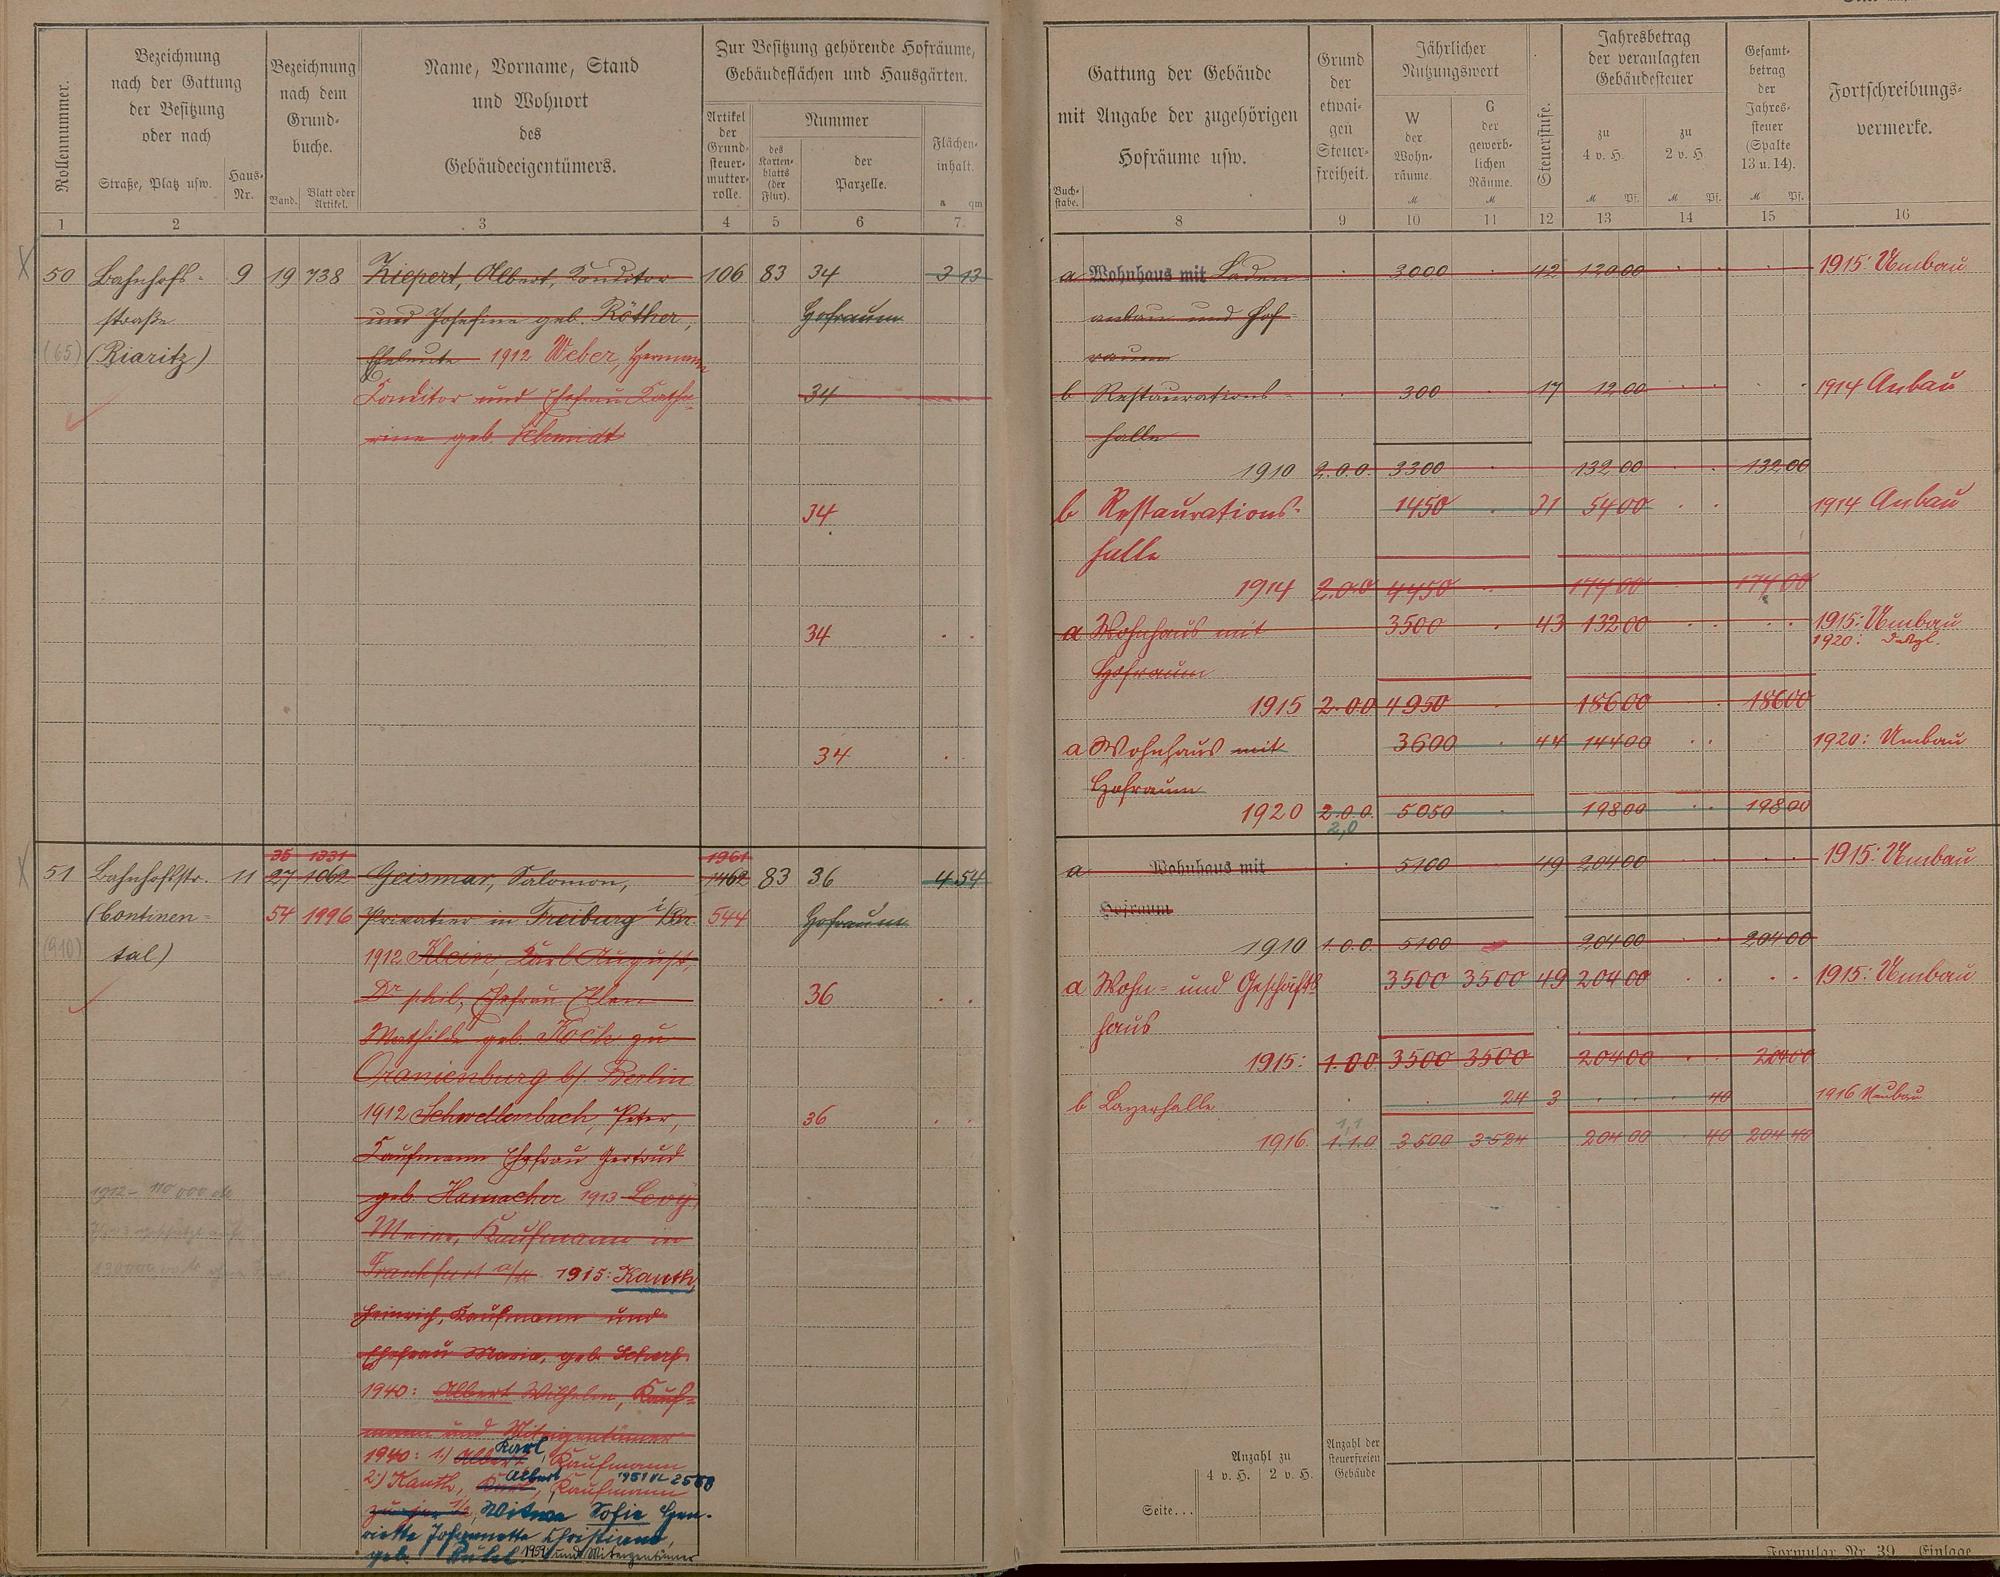 Rollennummer.
Bezeichnung
nach der Gattung
der Besitzung
oder nach
Straße, Platz usw.
Haus-
Nr.
Bezeichnung
nach dem
Grund-
buche.
Band.
Blatt oder
Artikel.
Name, Vorname, Stand
und Wohnort
des
Gebäudeeigentümers.
Zur Besitzung gehörende Hofräume,
Gebäudeflächen und Hausgärten.
Artikel
der
Grund-
steuer-
mutter-
rolle.
Nummer
des
Karten-
blatts
(der
Flur).
der
Parzelle.
Flächen-
inhalt.
a qm
1 2 3 4 5 6 7
50 Bahnhofs- 9 19 738 Ziepert, Albert, Konditor 106 83 34 3 13
straße und Josefine geb. Röther, Hofraum
(65) (Riaritz) Eheleute 1912 Weber, Hermann
Konditor und Ehefrau Katha- 34
rine geb. Schmidt
34
34
34
35 1331 1961
51 Bahnhofstr. 11 27 1062 Geismar, Salomon, 1462 83 36 4 54
(Continen- 54 1996 Privatier in Freiburg i/Br. 544 Hofraum
(910) tal) 1912 Klein, Karl August,
Dr phil, Ehefrau Ellen 36
Mathilde geb. Koch zu
Oranienburg b/. Berlin
1912 Schwellenbach, Peter, 36
Kaufmann Ehefrau Gertrud
1912 – 110 000 geb. Hamacher 1913 Levy,
Meier, Kaufmann in
Frankfurt a/M 1915: Kanth,
Heinrich, Kaufmann und
Ehefrau Maria, geb. Scharf.
1940: Albert Wilhelm, Kauf-
mann und Miteigentümer
1940: 1.) Albert Karl, Kaufmann
2.) Kanth, Karl Albert, Kaufmann 1951 VL 2560
zu je 1/2, Witwe Sofie Hen-
riette Johannette Christiane,
geb. 1959 und Miteigentümer
Gattung der Gebäude
mit Angabe der zugehörigen
Hofräume usw.
Buch-
stabe.
Grund
der
etwai-
gen
Steuer-
freiheit.
Jährlicher
Nutzungswert
W
der
Wohn-
räume.
M
G
der
gewerb-
lichen
Räume.
M
Steuerstufe.
Jahresbetrag
der veranlagten
Gebäudesteuer
zu
4 v. H.
M Pf.
zu
2 v. H.
M Pf.
Gesamt-
betrag
der
Jahres-
steuer
(Spalte
13 u. 14).
M Pf.
Fortschreibungs-
vermerke.
8 9 10 11 12 13 14 15 16
a Wohnhaus mit Laden 3000 42 120 00 1915: Umbau
anbau und Hof-
raum
b Restaurations- 300 17 12 00 1914 Anbau
halle
1910 2.0.0. 3300 132 00 132 00
b Restaurations- 1450 31 54 00 1914 Anbau
halle
1914 2.0.0 4450 174 00 174 00
a Wohnhaus mit 3500 43 132 00 1915: Umbau
1920: dsgl.
Hofraum
1915 2.0.0 4950 186 00 186 00
a Wohnhaus mit 3600 44 144 00 1920: Umbau
Hofraum
1920 2.0.0. 5050 198 00 198 00
2,0
a Wohnhaus mit 5100 49 204 00 1915: Umbau
Hofraum
1910 1.0.0. 5100 204 00 204 00
a Wohn- und Geschäfts 3500 3500 49 204 00 1915: Umbau
haus
1915: 1.0.0 3500 3500 204 00 204 00
b Lagerhalle 24 3 40 1916 Neubau
1,1
1916 1.1.0 3500 3524 204 00 40 204 40
Anzahl zu
4 v. H. 2 v. H.
Anzahl der
steuerfreien
Gebäude
Seite...
Formular Nr. 39. Einlage